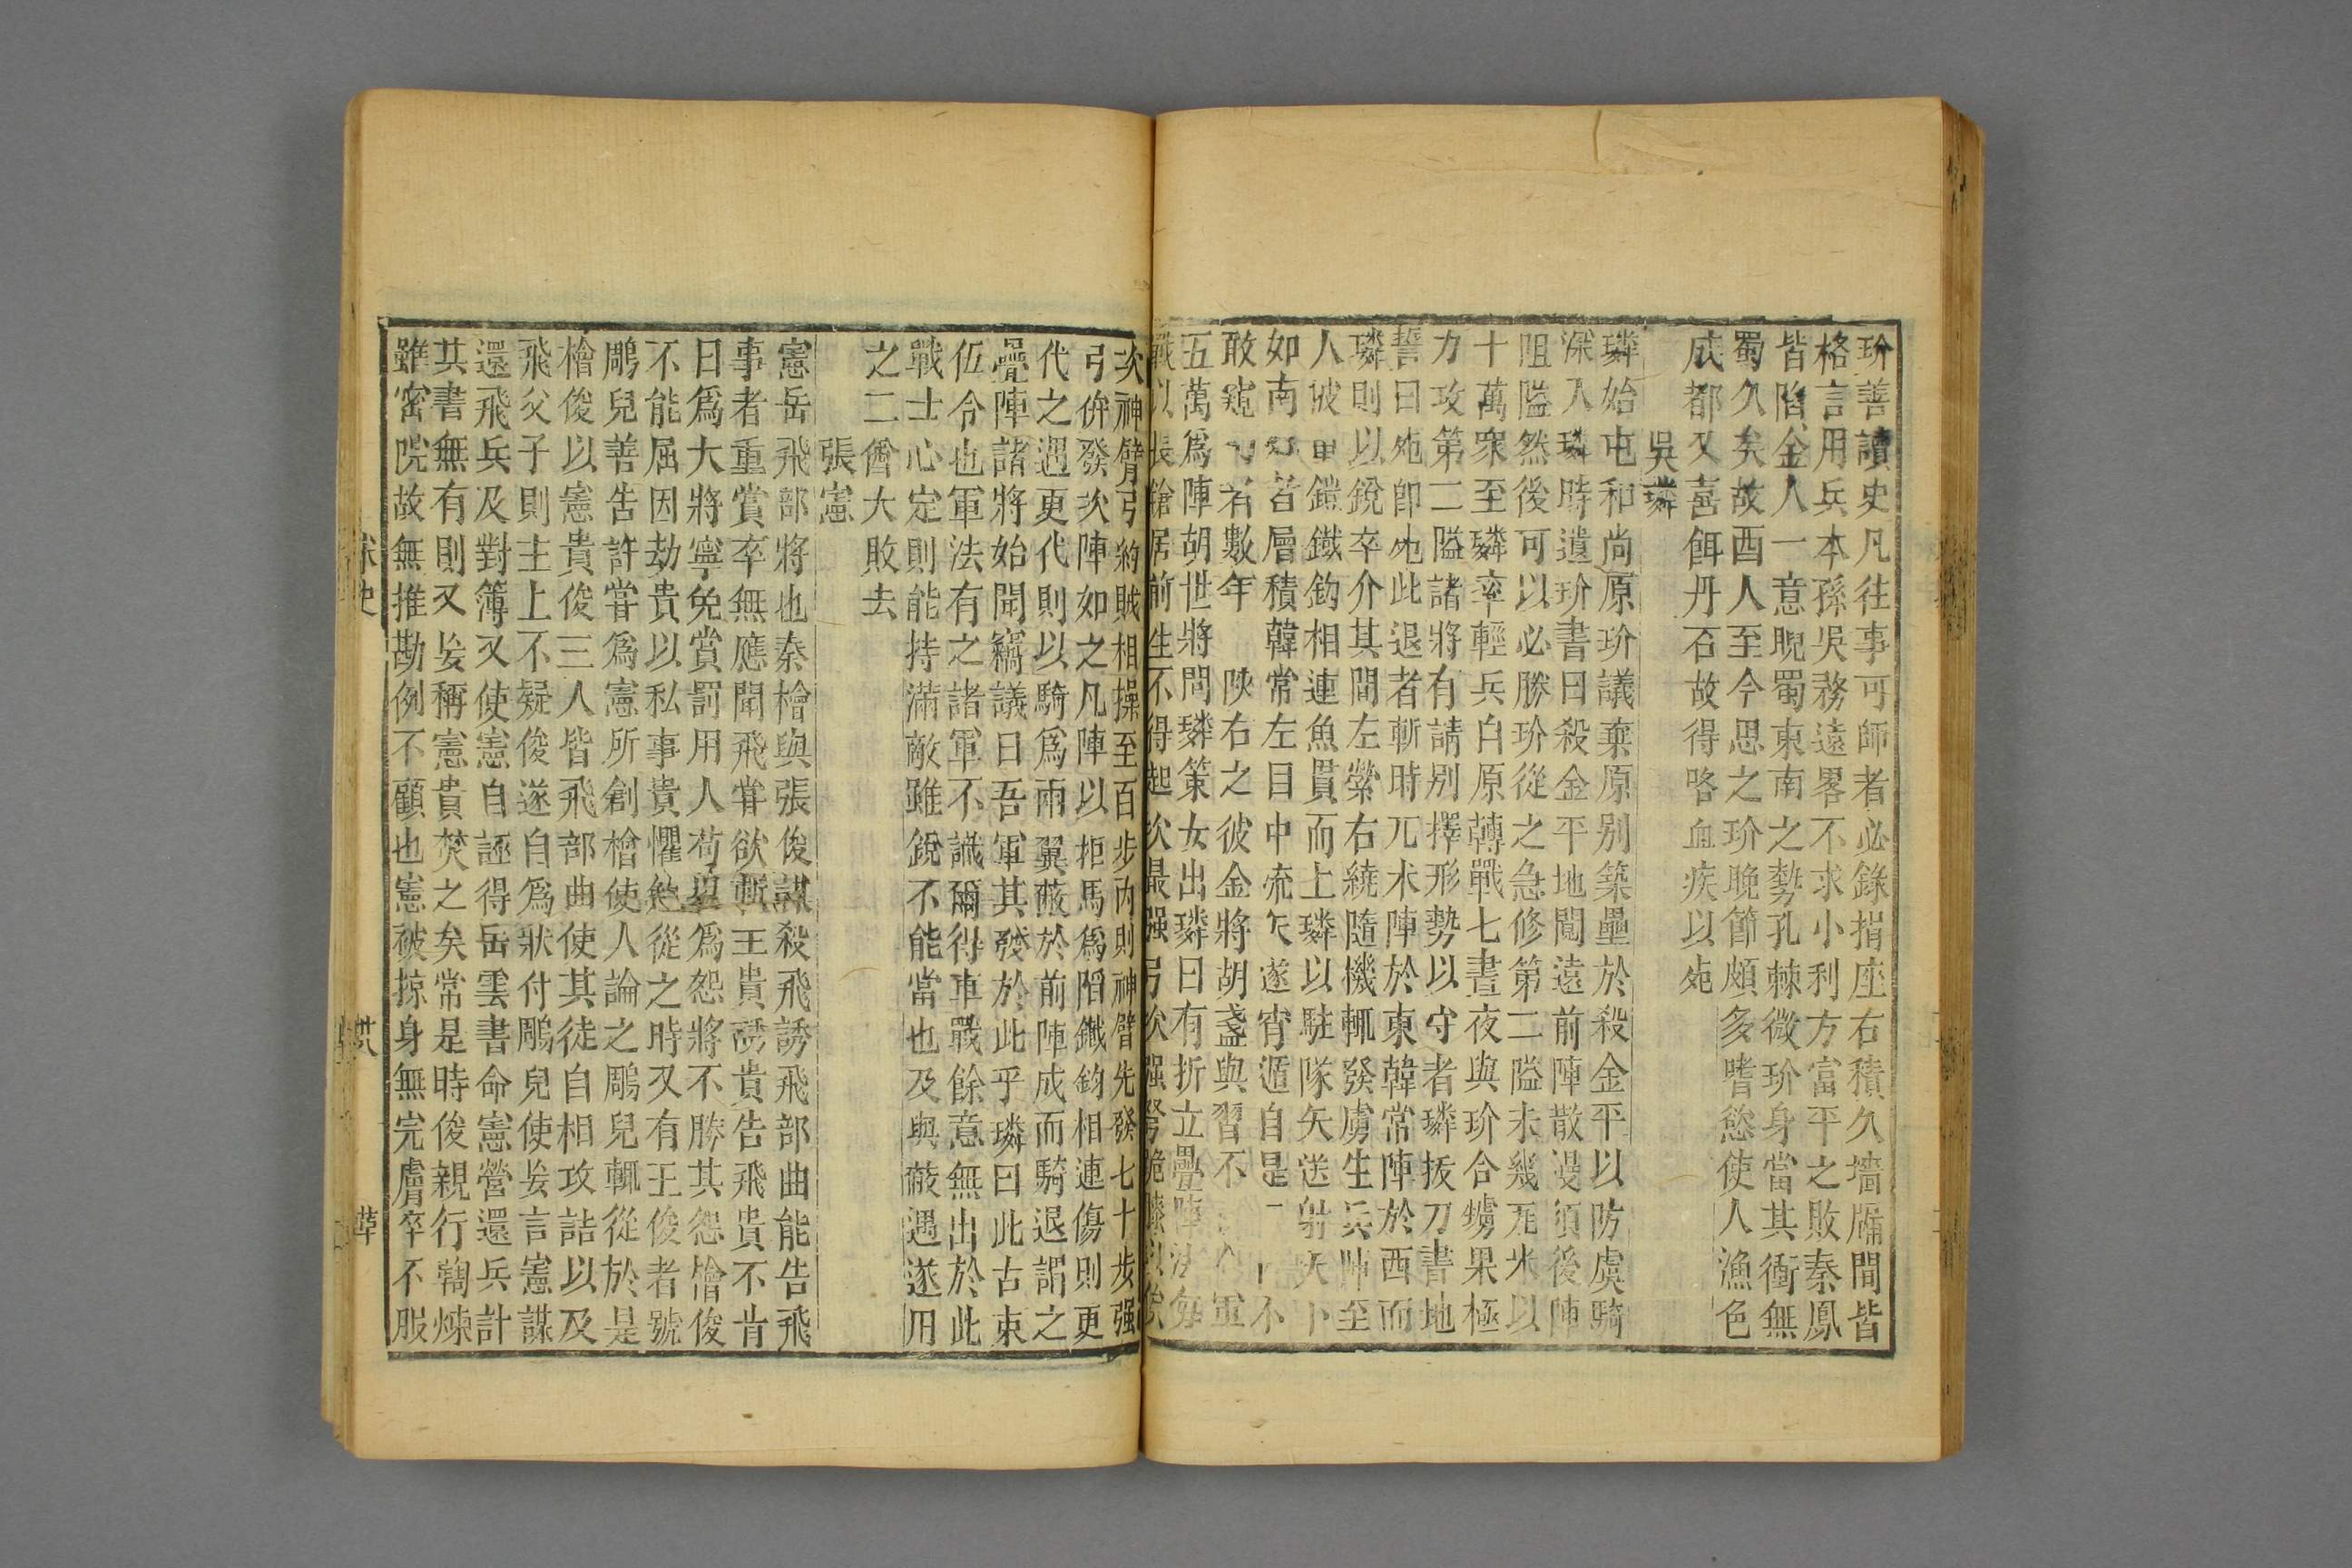 玠善讀史凡往事可師者必錄揭座右積久墻牖間皆
格言用兵本孫吳務遠畧不求小利方富平之敗秦鳳
皆陷金人一意睨蜀東南之勢孔棘微玠身當其衝無
蜀久矣故西人至今思之玠晚節頗多嗜慾使人漁色
成都又喜餌丹石故得咯血疾以死
吳璘
璘始屯和尚原玠議棄原别築壘於殺金平以防虜騎
深入璘時遺玠書曰殺金平地闊遠前陣散漫須後陣
阻隘然後可以必勝玠從之急修第二隘未幾兀术以
十萬衆至璘率輕兵自原轉戰七晝夜與玠合虜果極
力攻第二隘諸將有請别擇形勢以守者璘拔刀書地
誓曰死即死此退者斬時兀术陣於東韓常陣於西而
璘則以銳卒介其間左縈右繞隨機輒發虜生兵陣至
人被重鎧鐵鈎相連魚貫而上璘以駐隊矢送射矢下
如南苦層積韓常左目中流矢遂宵遁自是不
敢窺者數年陜右之彼金將胡盞與習不軍
五萬爲陣胡世將問璘策女出璘曰有折立疊陣法每
戰以長鎗居前坐不得起次最强弓次强弩跪膝以俟
次神臂弓約賊相操至百步内則神臂先發七十步强
弓併發次陣如之凡陣以拒馬爲陷鐵鈎相連傷則更
代之遇更代則以騎爲兩翼蔽於前陣成而騎退謂之
疊陣諸將始聞竊議曰吾軍其殲於此乎璘曰此古束
伍令也軍法有之諸軍不識爾得車戰餘意無出於此
戰士心定則能持滿敵雖銳不能當也及與敵遇遂用
之二酋大敗去
張憲
憲岳飛部將也秦檜與張俊謀殺飛誘飛部曲能告飛
事者重賞卒無應聞飛甞欲斬王貴誘貴告飛貴不肯
曰爲大將寧免賞罰用人苟以爲怨將不勝其怨檜俊
不能屈因劫貴以私事貴懼勉從之時又有王俊者號
鵰兒善告訐甞爲憲所創檜使人論之鵰兒輒從於是
檜俊以憲貴俊三人皆飛部曲使其徒自相攻詰以及
飛父子則主上不疑俊遂自爲狀付鵰兒使妄言憲謀
還飛兵及對簿又使憲自誣得岳雲書命憲營還兵計
其書無有則又妄稱憲貴焚之矣常是時俊親行鞫煉
雖密院故無推勘例不顧也憲被掠身無完膚卒不服